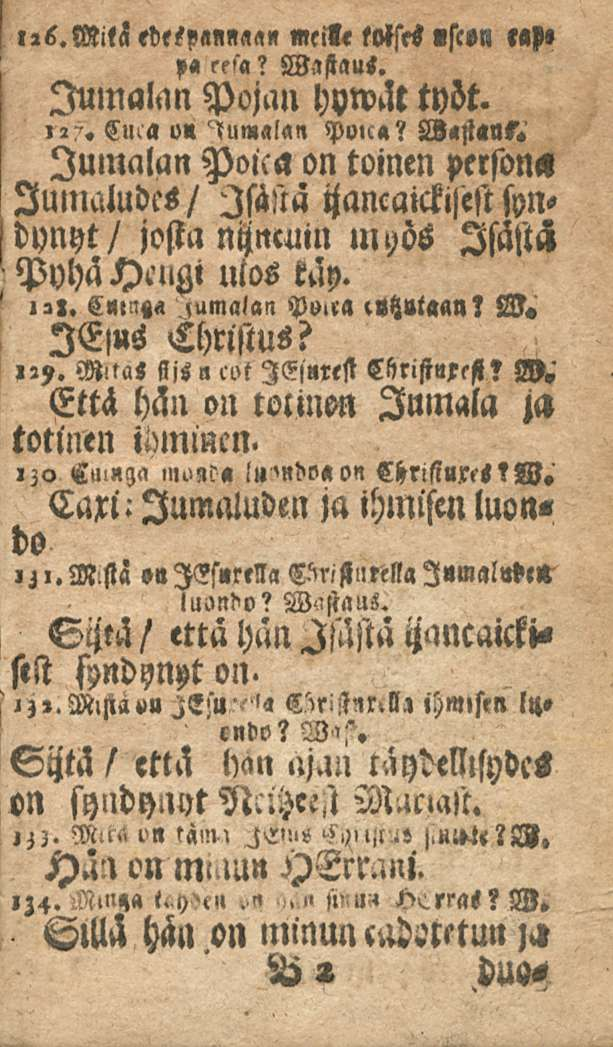 126. Mitä edespannaan meille toises uscon cap-
pa lesa? Wastaus.
Jumalan Pojan hywät työt.
127. Cuca on Jumalan Poica? Wastaus.
Jumalan Poica on toinen persona
Jumaludes / Isästä ijancaickisest syn-
dynyt / josta nijncuin myös Isästä
Pyhä Hengi ulos käy.
128. Cuinga Jumalan Poica cutzutaan? W.
JEsus Christus?
129. Mitäs sijs uscot JEsurest Christuxest? W.
Että hän on totinen Jumala ja
totinen ihminen.
130 Cuinga monda luondoa on Christuxes? W.
Caxi: Jumaluden ja ihmisen luon-
do
131. Mistä on JEsurella Christurella Jumaluden
luondo? Wastaus.
Sijtä / että hän Isästä ijancaicki-
sest syndynyt on.
132. Mistä on JEsurella Christurella ihmisen lu-
ondo? Wast.
Sijtä / että hän ajan täydellisydes
on syndynyt Neitzeest Mariast.
133. Mikä on tämä JEsus Christus sinulle? W.
Hän on minun HErrani.
134. Minga tähden on hän sinun HErras? W.
Sillä hän on minun cadotetun ja
B 2 duo-